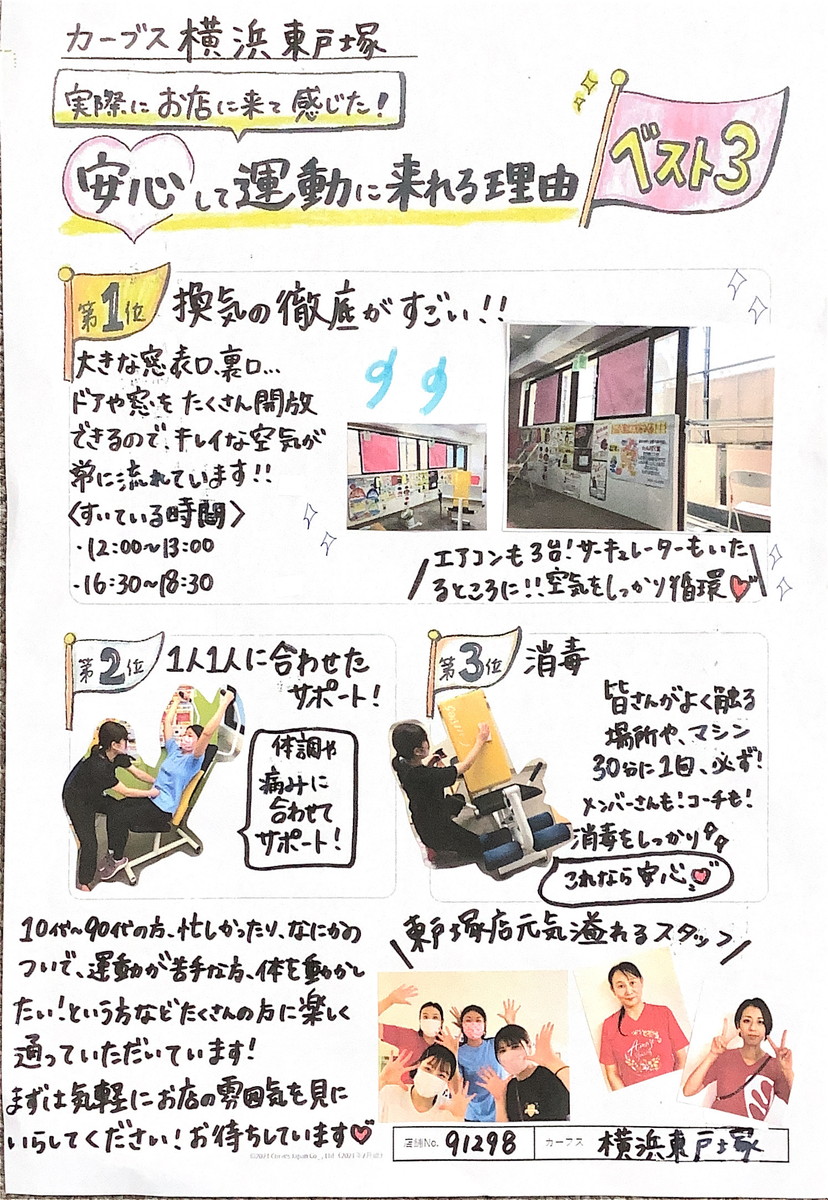 カーブス 横浜東戸塚
実際に お店に来て 感じた!
安心して運動に来れる理由
ベスト3
第1位
換気の徹底がすごい!!
大きな窓表口、裏口...
ドアや窓を たくさん開放
できるので、キレイな空気が
常に流れています!!
〈すいている時間〉
・12:00~13:00
・16:30~18:30
エアコンも3台!サーキュレーターもいた
るところに!!空気をしっかり循環
第2位
1人1人に合わせた
サポート!
体調や
痛みに
合わせて
サポート!
第3位
消毒
皆さんがよく触る
場所や、マシン
30分に1回、必ず!
メンバーさんも!コーチも!
消毒をしっかり
これなら安心
10代~90代の方、忙しかったり、なにかの
ついで、運動が苦手な方、体を動かし
たい!という方などたくさんの方に楽しく
通っていただいています!
まずは気軽にお店の雰囲気を見に
いらしてください!お待ちしています
東戸塚店元気溢れるスタッフ
店舗No. 91298 カーブス 横浜東戸塚